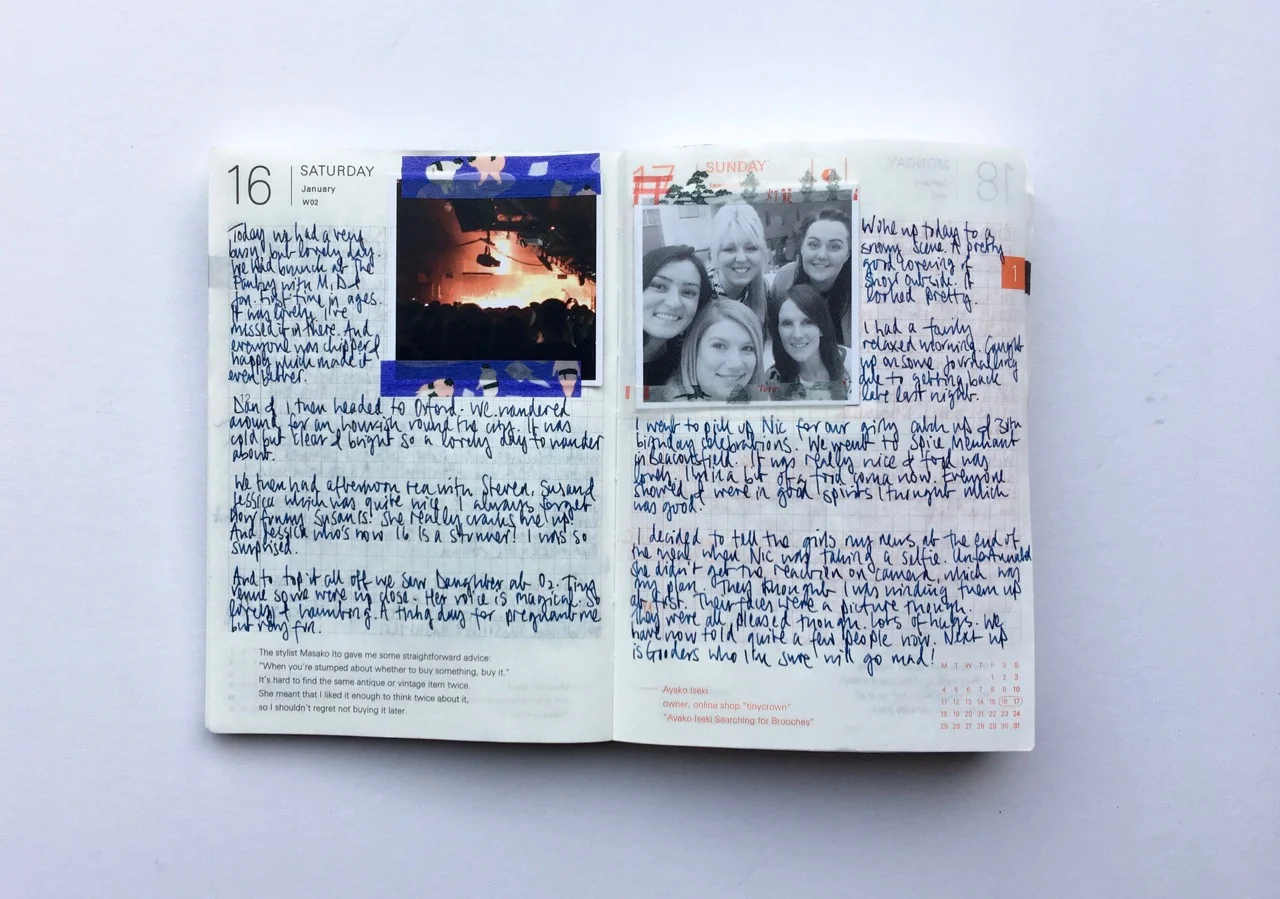 16
SATURDAY
January
W02
Today we had a very
busy, but lovely day.
We had brunch at the
Pantry with M, D &
Jon. First time in ages.
It was lovely. I've
missed it in there. And
everyone was chipper &
happy which made it
even better.
Dan & I then headed to Oxford. We wandered
around for an hourish round the city. It was
cold but clear & bright so a lovely day to wander
about.
We then had afternoon tea with Steven, Sus and
Jessica which was quite nice. I always forget
how funny Susan is! She really cracks me up.
And Jessica who's now 16 is a stunner! I was so
surprised.
And to top it all off we saw Daughter at O2. Tiny
venue so we were in close. Her voice is magical. So
lovely & haunting. A tiring day for pregnant me
but very fun.
The stylist Masako Ito gave me some straightforward advice:
"When you're stumped about whether to buy something, buy it."
It's hard to find the same antique or vintage item twice.
She meant that I liked it enough to think twice about it,
so I shouldn't regret not buying it later.
17
SUNDAY
Jan
灯籠
Woke up today to a
snowy scene. A pretty
good covering of
snow outside. It
looked pretty.
I had a fairly
relaxed morning. Caught
up on some journalling
due to getting back
late last night.
I went to pick up Nic for our girly catch up & 30th
birthday celebrations. We went to Spice Merchant
in Beaconsfield. It was really nice & food was
lovely. I'm in a bit of a food coma now. Everyone
showed & were in good spirits I thought which
was good!
I decided to tell the girls my news at the end of
the meal when Nic was taking a selfie. Unfortunately
she didn't get the reaction on camera, which was
my plan. They thought I was winding them up
at first. Their faces were a picture though.
They were all pleased though. Lots of hugs. We
have now told quite a few people now. Next up
is Gooders who I'm sure will go mad!
Ayako Iseki
owner, online shop "tinycrown"
"Ayako Iseki Searching for Brooches"
M T W T F S S
1 2 3
4 5 6 7 8 9 10
11 12 13 14 15 16 17
18 19 20 21 22 23 24
25 26 27 28 29 30 31
1
MONDAY
January
18